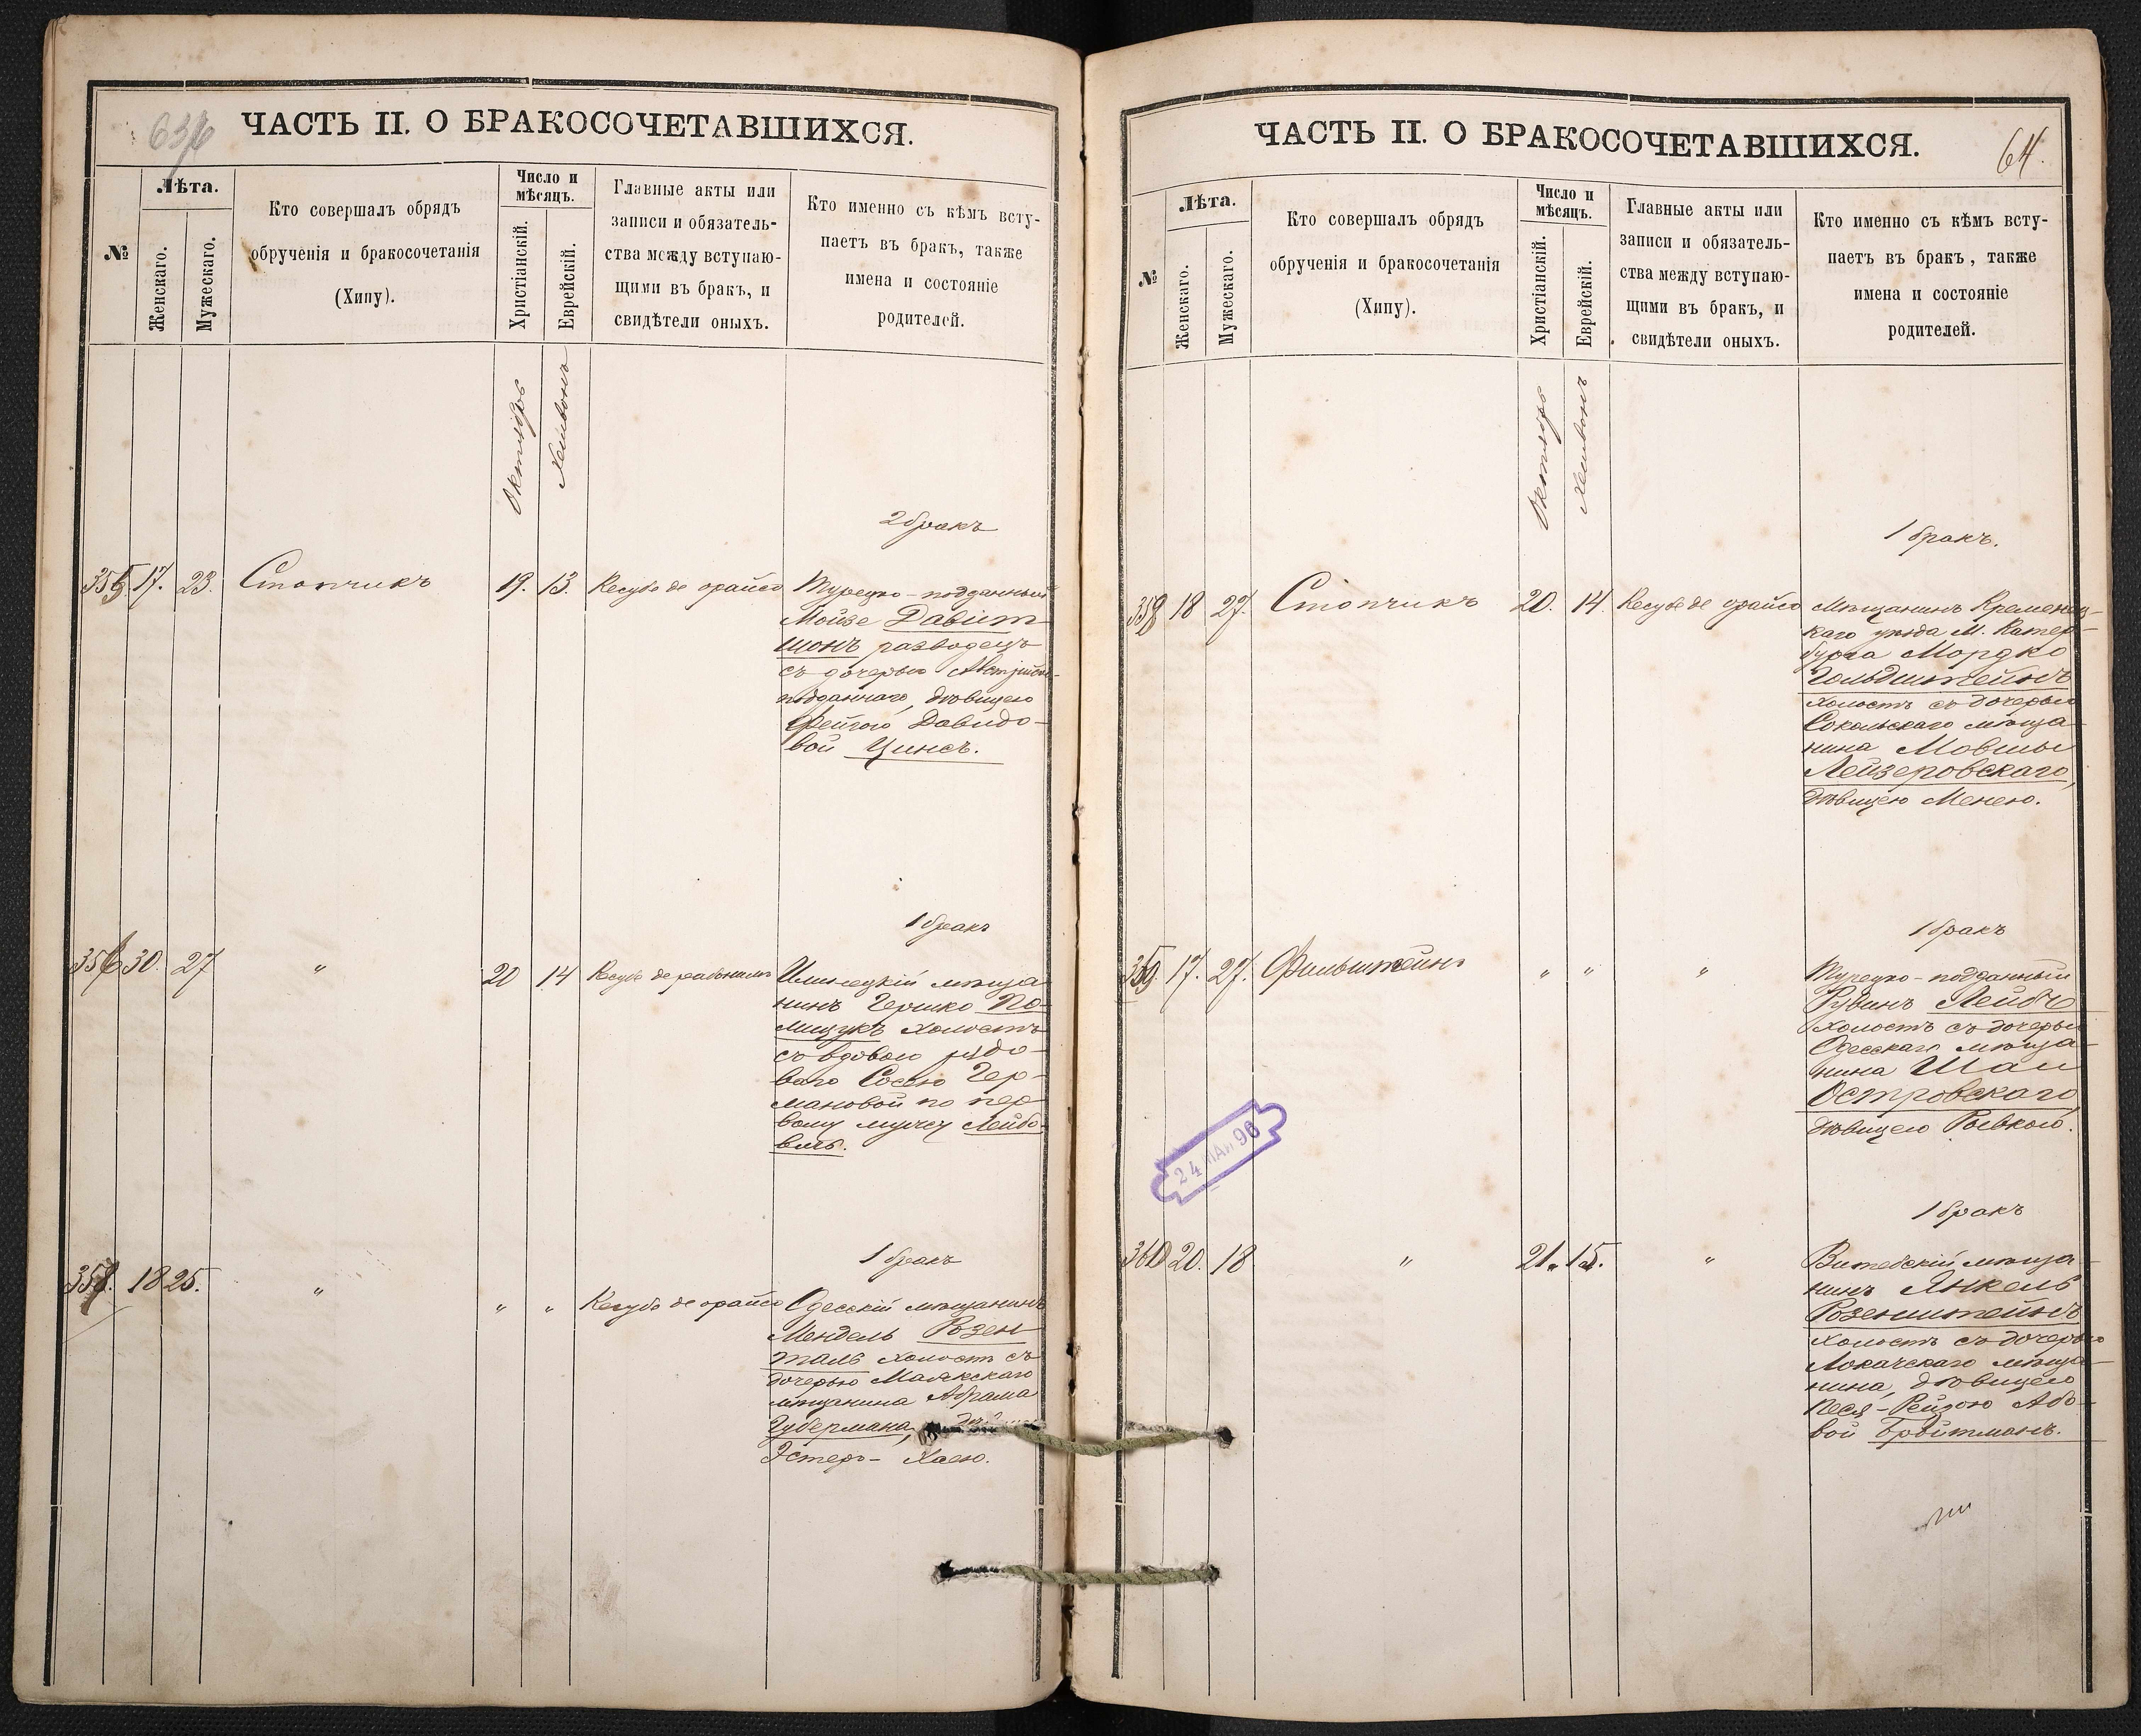 ЧАСТЬ II. О БРАКОСОЧЕТАВШИХСЯ.
№
Лѣта.
Женскаго.
Мужескаго.
Кто совершалъ обрядъ
обрученія и бракосочетанія
(Хипу).
Число и
мѣсяцъ.
Христіанскій.
Еврейскій.
Главные акты или
записи и обязатель-
ства между вступаю-
щими въ бракъ, и
свидѣтели оныхъ.
Кто именно съ кѣмъ всту-
паетъ въ бракъ, также
имена и состояніе
родителей.
Октябрь
Хешвонъ
2 бракъ
355 17. 23. Стопчикъ 19. 13. Кесубе де орайсо Турецко-подданный
Мойзе Давит
шонъ разводецъ
съ дочерью Австрійско-
подданнаго, дѣвицею
Фейгою Давидо-
вой Цинсъ.
1 бракъ
356 30. 27 " 20 14 Кесубе де рабонимъ Илинецкій мѣща
нинъ Гершко По-
лищукъ холостъ
съ вдовою рядо-
ваго Сосею Гер-
мановой по пер
вому мужу Лейбо-
вичъ.
1 бракъ
357. 18 25. " " " Кесубе де орайсо Одесскій мѣщанинъ
Мендель Розен
таль холостъ съ
дочерью Маякскаго
мѣщанина Абрама
Губермана,
Эстеръ- Хаею.
ЧАСТЬ II. О БРАКОСОЧЕТАВШИХСЯ.
64.
№
Лѣта.
Женскаго.
Мужескаго.
Кто совершалъ обрядъ
обрученія и бракосочетанія
(Хипу).
Число и
мѣсяцъ.
Христіанскій.
Еврейскій.
Главные акты или
записи и обязатель-
ства между вступаю-
щими въ бракъ, и
свидѣтели оныхъ.
Кто именно съ кѣмъ всту-
паетъ въ бракъ, также
имена и состояніе
родителей.
Октябрь
Хешвонъ
1 бракъ.
358 18 27. Стопчикъ 20. 14. Кесубе де орайсо Мѣщанинъ Кременец-
каго уѣзда М. Катер-
бурга Мордко
Гольдштейнъ
холостъ съ дочерью
Сокольскаго мѣща-
нина Мовши
Лейзеровскаго,
дѣвицею Менею.
1 бракъ
359. 17. 27. Фильштейнъ " " " Турецко-подданный
Рувинъ Лейбъ
холостъ съ дочерью
Одесскаго мѣща-
нина Шаи
Островскаго
дѣвицею Ривкою.
24 МАЯ 96
1 бракъ
360 20. 18 " 21. 15. " Витебскій мѣща-
нинъ Янкель
Розенштейнъ
холостъ съ дочерью
Локачскаго мѣща-
нина, дѣвицею
Песя-Рейзою Або-
вой Бройтманъ.